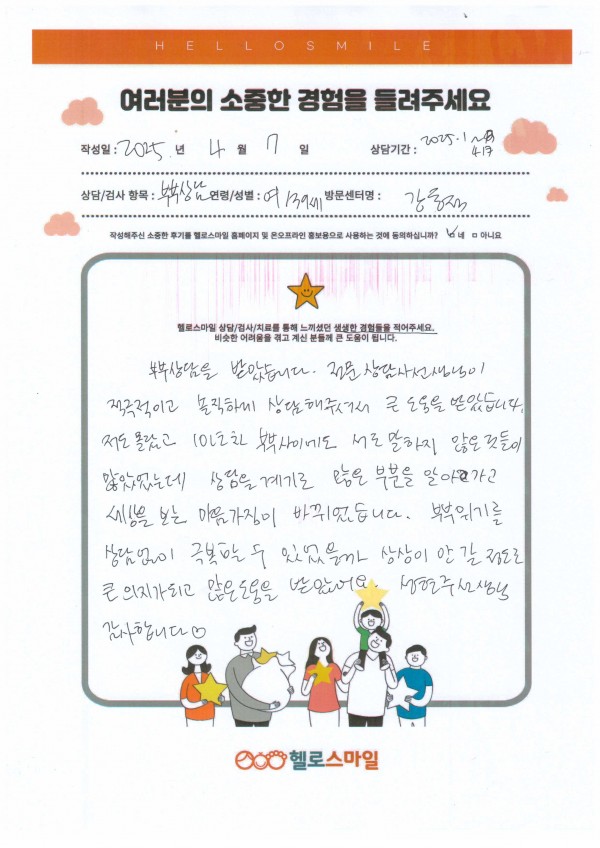 HELLOSMILE
여러분의 소중한 경험을 들려주세요
작성일 : 2025. 년 4 월 7 일 상담기간 : 2025. 1 ~ 4月
상담/검사 항목 : 부부상담 연령/성별 : 여 / 39세 방문센터명 : 강동점
작성해주신 소중한 후기를 헬로스마일 홈페이지 및 온오프라인 홍보용으로 사용하는 것에 동의하십니까? ☑ 네 □ 아니요
헬로스마일 상담/검사/치료를 통해 느끼셨던 생생한 경험들을 적어주세요.
비슷한 어려움을 겪고 계신 분들께 큰 도움이 됩니다.
부부상담을 받았습니다. 전문 상담사선생님이
적극적이고 솔직하게 상담해주셔서 큰 도움을 받았습니다.
저도 몰랐고 10년차 부부사이에도 서로 말하지 않은 것들이
많았었는데 상담을 계기로 많은 부분을 알아가고
세상을 보는 마음가짐이 바뀌었습니다. 부부위기를
상담없이 극복할 수 있었을까 상상이 안 갈 정도로
큰 의지가되고 많은도움을 받았어요. 성현주선생님
감사합니다
헬로스마일